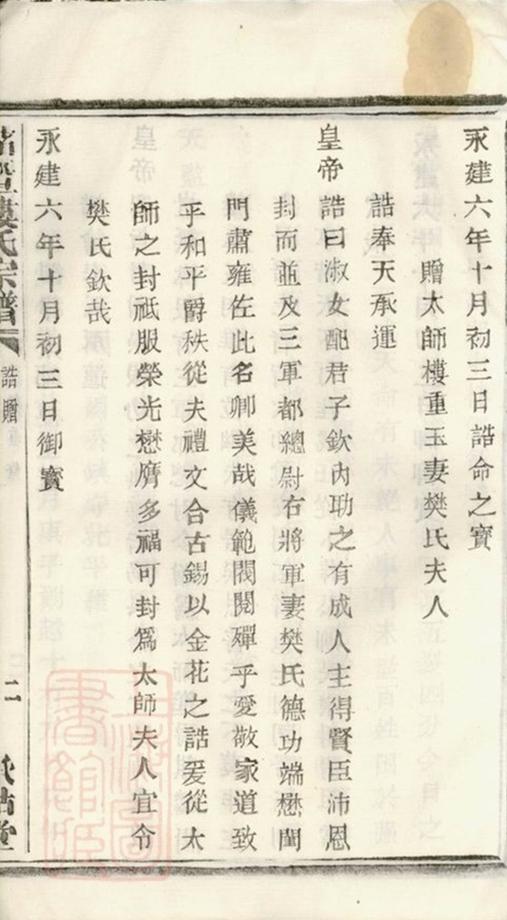 永建六年十月初三日誥命之寶
贈太師樓重玉妻樊氏夫人
誥奉天承運
皇帝誥曰淑女配君子欽內功之有成人主得賢臣沛恩
封而並及三軍都總尉右將軍妻樊氏德功端懋閨
門肅雍佐此名卿美哉儀範閥閱殫乎愛敬家道致
乎和平爵秩從夫禮文合古錫以金花之誥爰從太
師之封祗服榮光懋膺多福可封爲太師夫人宜令
樊氏欽哉
永建六年十月初三日御寶
樓氏宗譜
誥贈
二